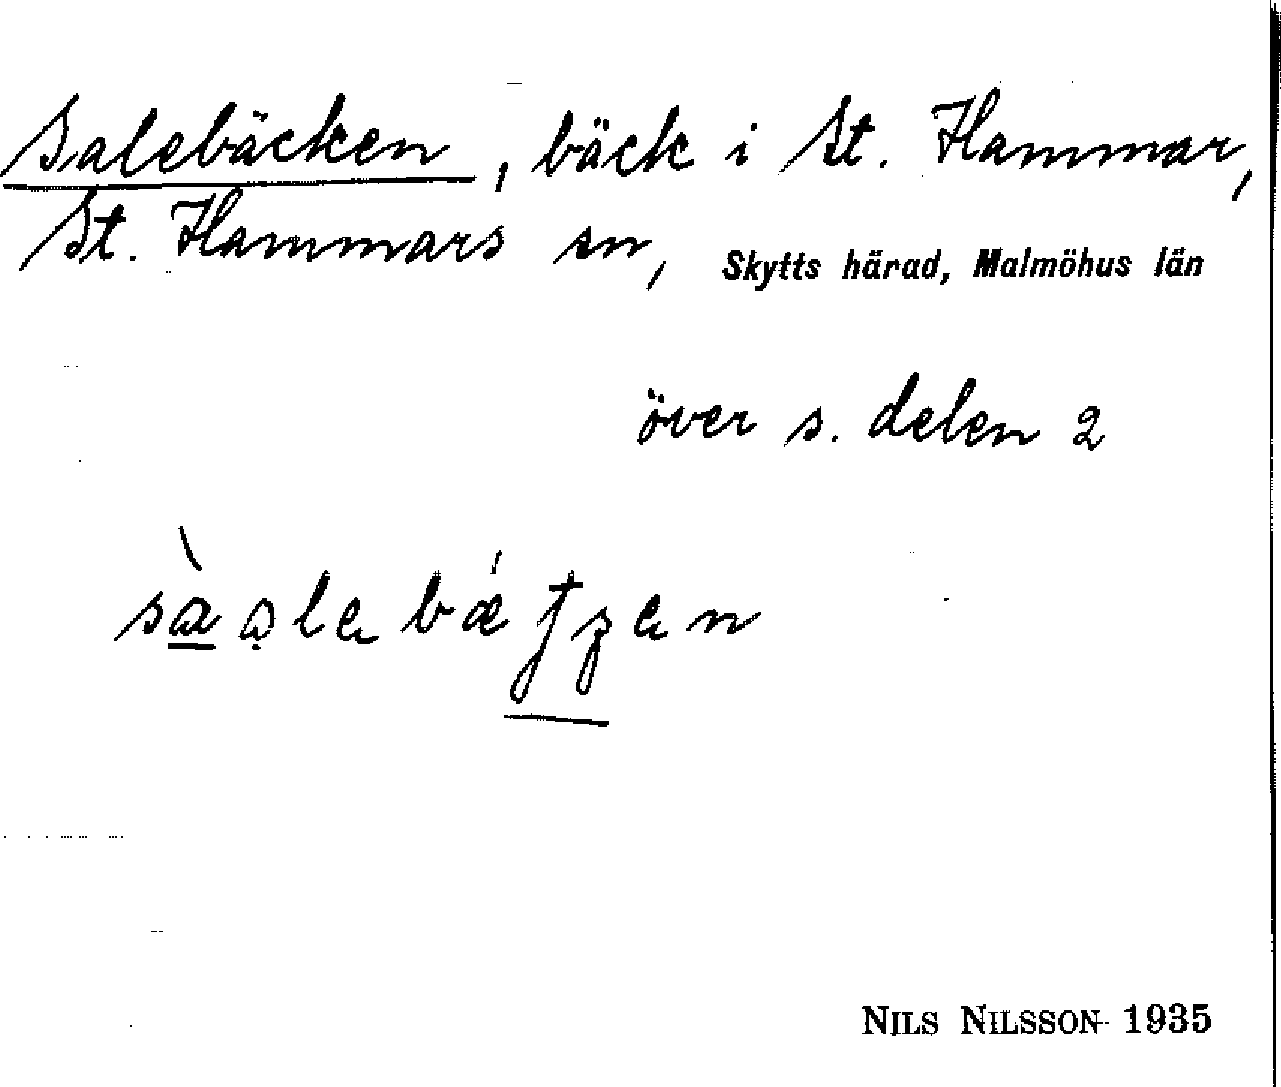 Salebäcken, bäck i St. Hammar,
St. Hammars sn, Skytts härad, Malmöhus län
över s. delen 2
NILS NILSSON 1935